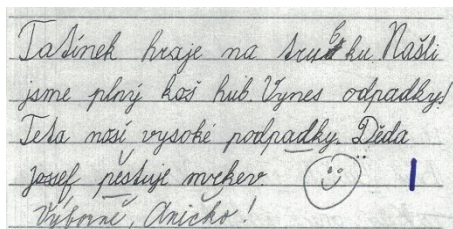 Tatínek hraje na trubku. Našli
jsme plný koš hub. Vynes odpadky!
Teta nosí vysoké podpadky. Děda
Jossef pěstuje mrkev.
Výborně, Aničko!